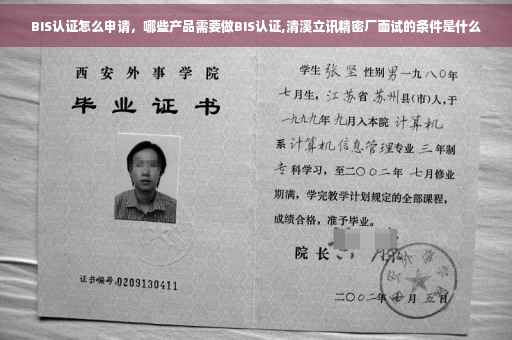 BIS认证怎么申请，哪些产品需要做BIS认证,清溪立讯精密厂面试的条件是什么
西安外事学院
毕业证书
证书编号:0209130411
学生 张坚 性别男 一九八〇年
七月生，江苏省苏州县(市)人,于
一九九九年九月入本院 计算机
系 计算机信息管理专业 三年制
专科学习，至二〇〇二年 七月修业
期满，学完教学计划规定的全部课程，
成绩合格，准予毕业。
院长
二〇〇二年 月五日